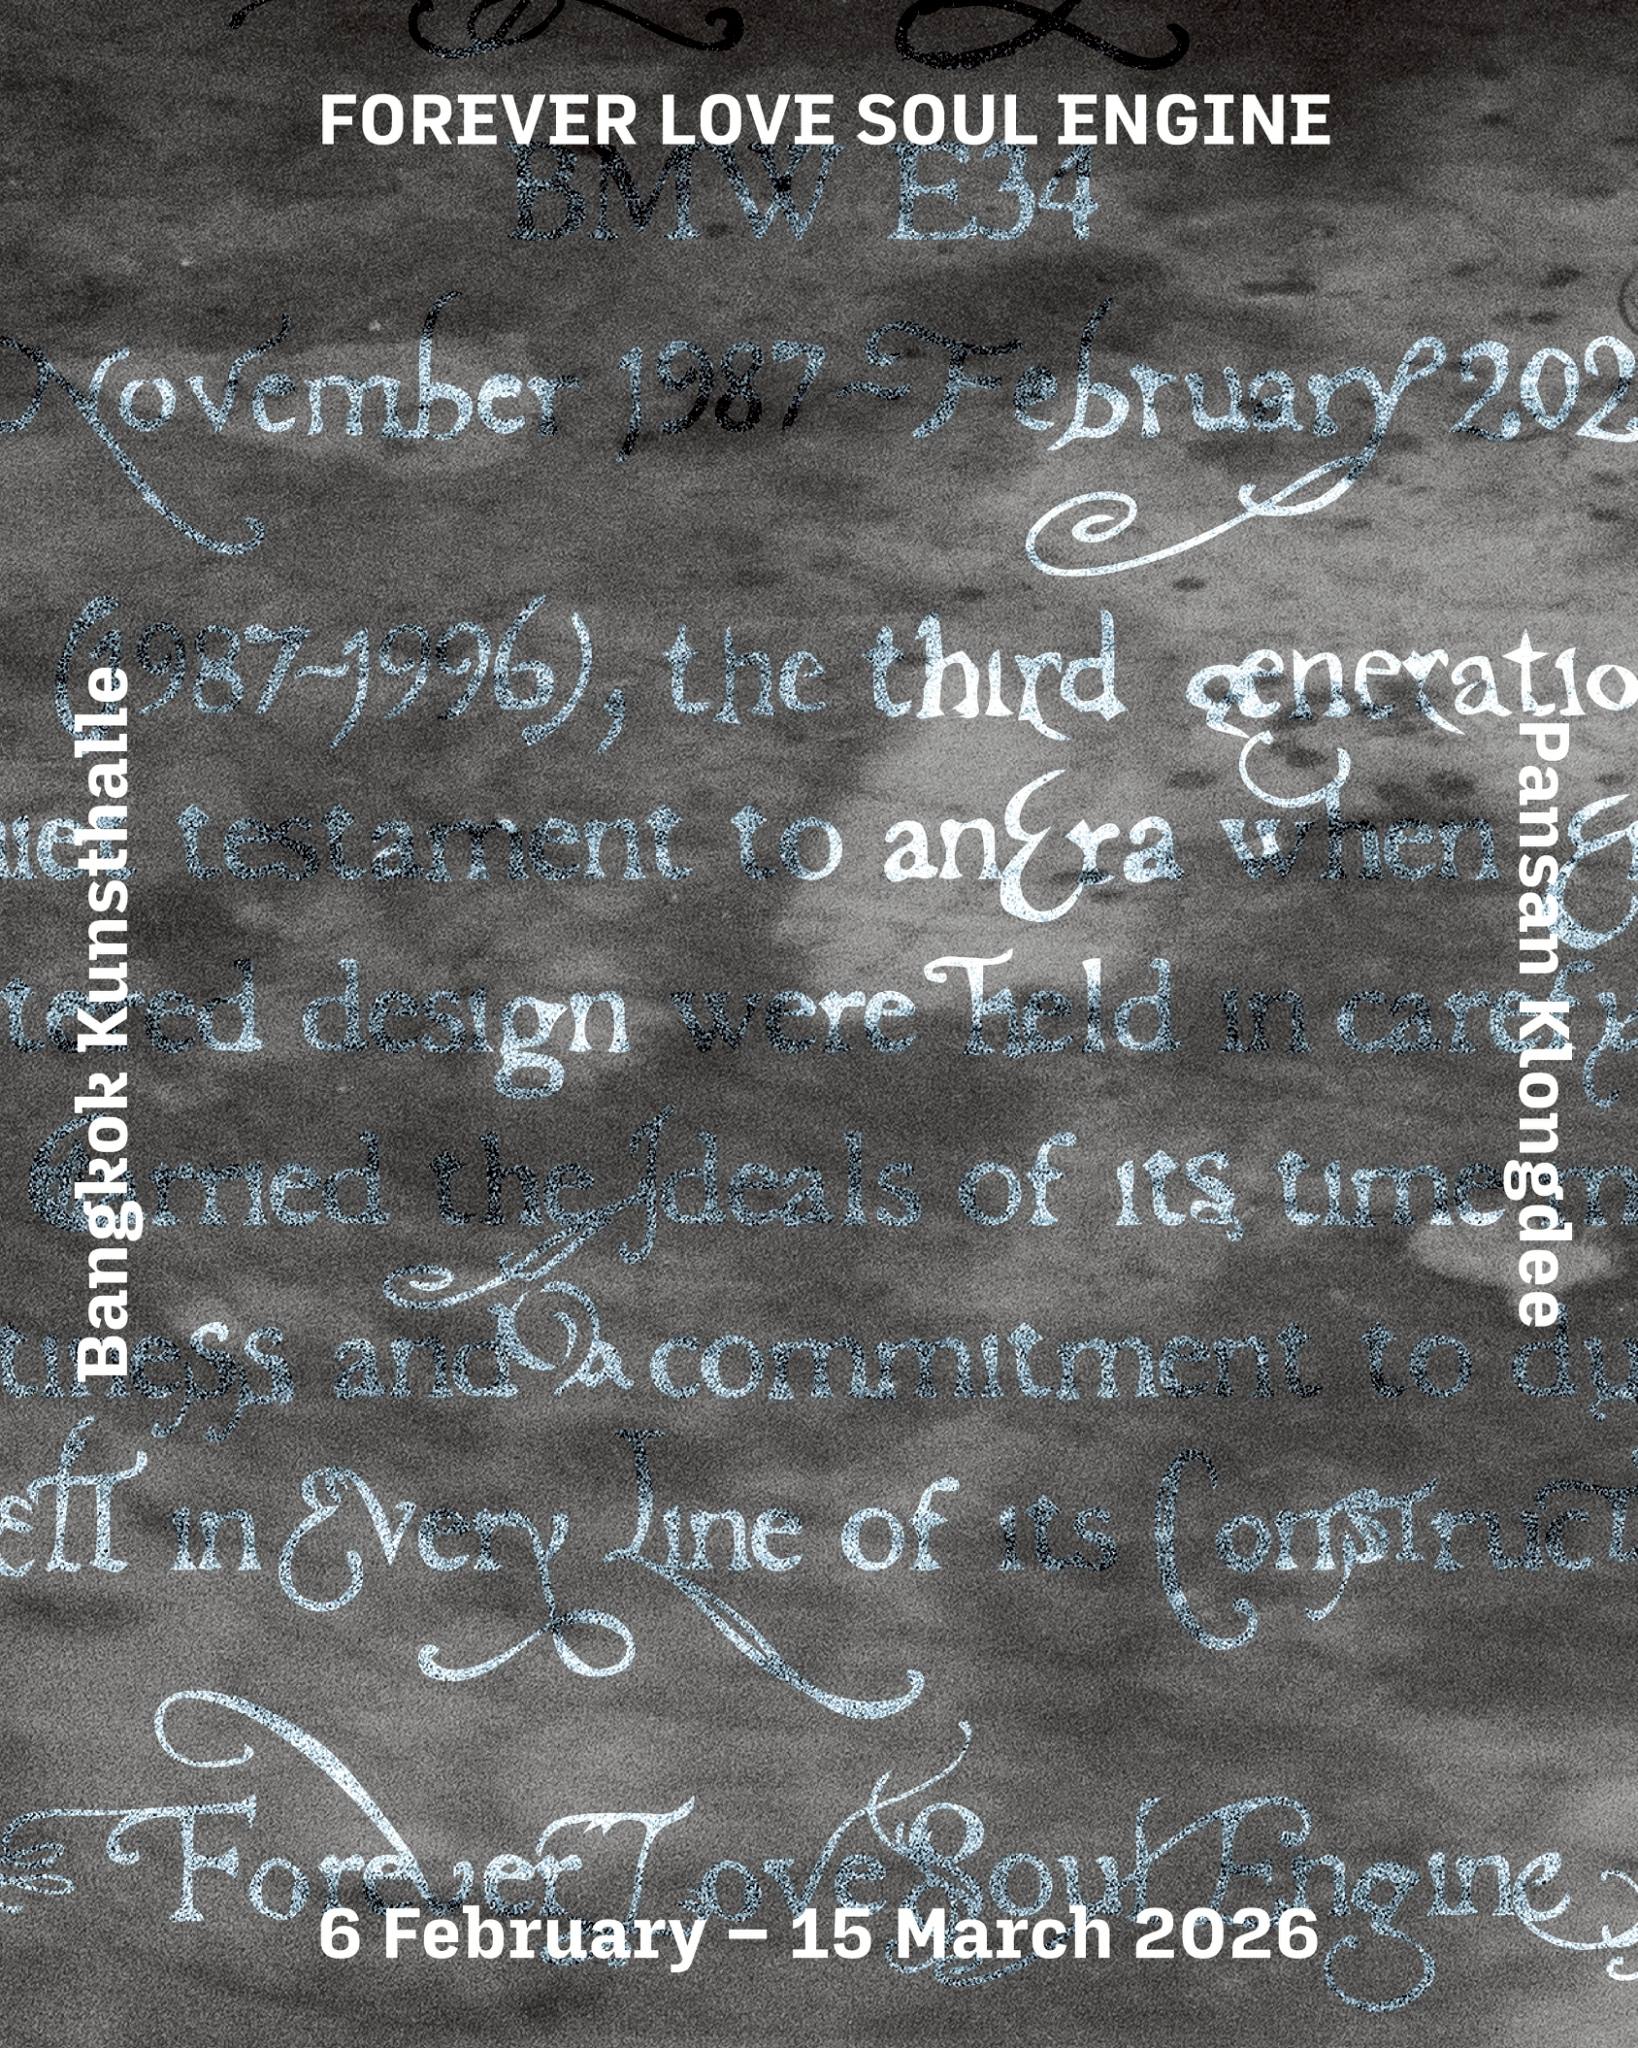 FOREVER LOVE SOUL ENGINE
BMW E34
November 1987~February 202
(1987~1996), the third generatio
testament to an Era when
tered design were Held in care
Carried the Ideals of its time
and a commitment to dy
in Every Line of its Construct
Forever Love Soul Engine
Bangkok Kunsthalle
Pansan Klongdee
6 February – 15 March 2026